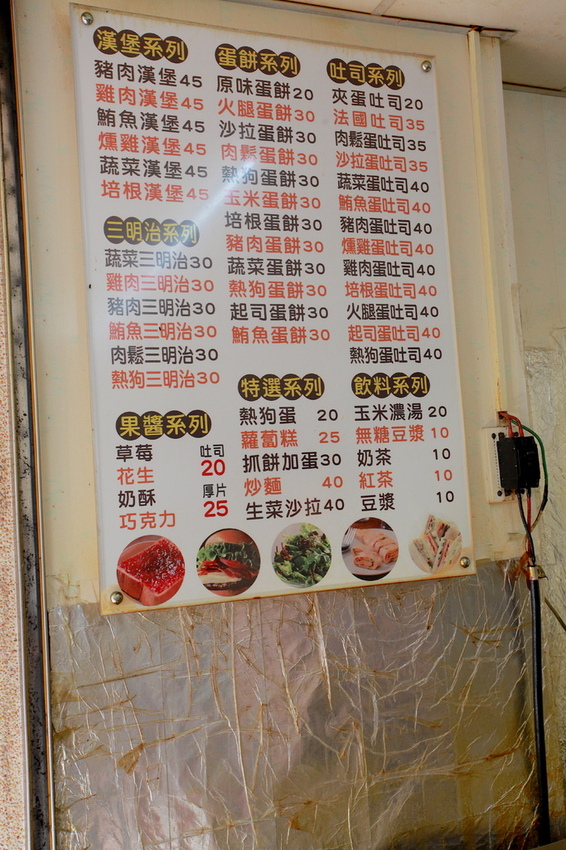 漢堡系列
豬肉漢堡45
雞肉漢堡45
鮪魚漢堡45
燻雞漢堡45
蔬菜漢堡45
培根漢堡45
三明治系列
蔬菜三明治30
雞肉三明治30
豬肉三明治30
鮪魚三明治30
肉鬆三明治30
熱狗三明治30
果醬系列
草莓 吐司
花生 20
奶酥 厚片
巧克力 25
蛋餅系列
原味蛋餅20
火腿蛋餅30
沙拉蛋餅30
肉鬆蛋餅30
熱狗蛋餅30
玉米蛋餅30
培根蛋餅30
豬肉蛋餅30
蔬菜蛋餅30
熱狗蛋餅30
起司蛋餅30
鮪魚蛋餅30
特選系列
熱狗蛋 20
蘿蔔糕 25
抓餅加蛋30
炒麵 40
生菜沙拉40
吐司系列
夾蛋吐司20
法國吐司35
肉鬆吐司35
沙拉吐司35
蔬菜蛋吐司40
鮪魚蛋吐司40
豬肉蛋吐司40
燻雞蛋吐司40
雞肉蛋吐司40
培根蛋吐司40
火腿蛋吐司40
起司蛋吐司40
熱狗蛋吐司40
飲料系列
玉米濃湯20
無糖豆漿10
奶茶 10
紅茶 10
豆漿 10